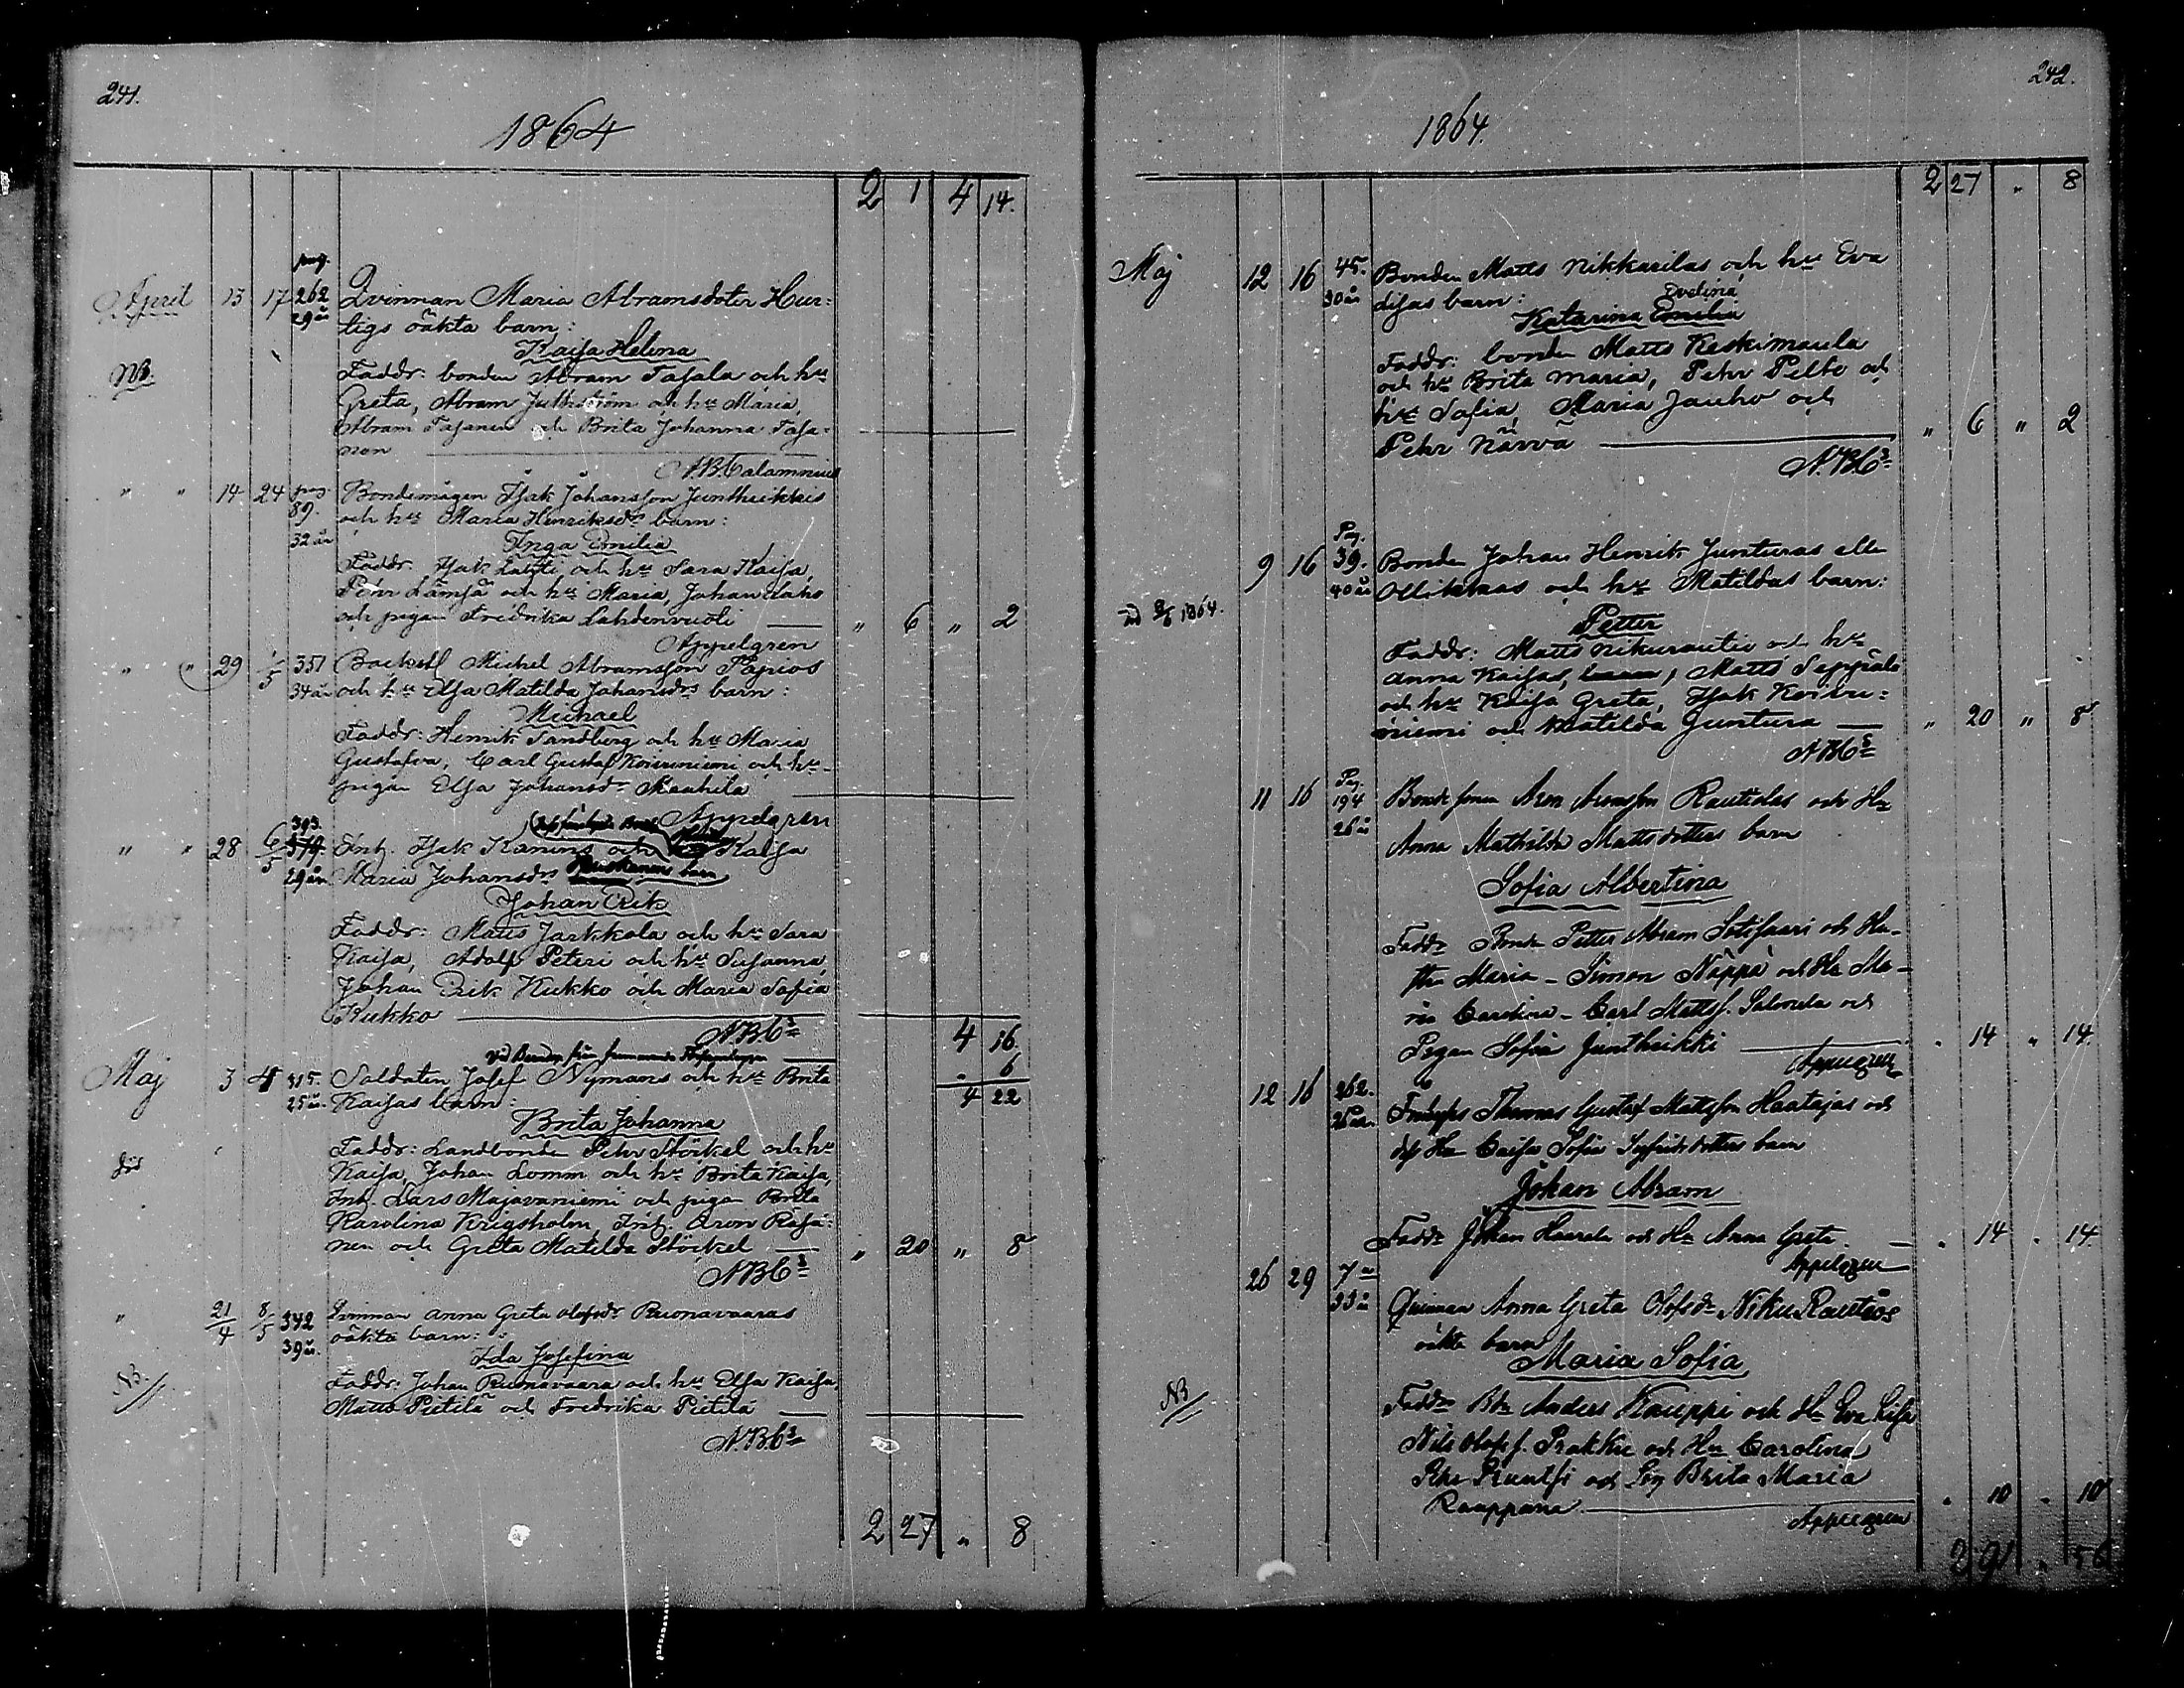 241.
1864
2 1 4 14.
pag.
April 13 17 262 Qvinnan Maria Abramsdoter Hur-
29 år tigs oäkta barn:
Kaisa Helena
NB. Faddr: bonden Abram Tasala och hu
Greta, Abram och hu Maria,
Abram Tasanen och Brita Johanna Tasa-
nen
N.B.Calamnius
" " 14 24 pag. Bondemågen Isak Johansson Juntheikkis
89. och hus Maria Henriksdrs barn:
32 år Inga Emilia
Faddr. Isak Lahti och hu Sara Kaisa,
Pehr Lämsä och hu Maria, Johan
och pigan Fredrika Lahdenvuoli " 6 " 2
Appelgren
" " 29 1/5 351 Backstf Michel Abramsson Tapios
34 år och hus Elsa Matilda Johansdrs barn:
Michael
Faddr: Henrik Sandberg och hu Maria
Gustafva, Carl Gustaf Koivuniemi och hu
pigan Elsa Johansdr
Appelgren
393.
" " 28 6/5 379. Inh. Isak Kanins och Kaisa
29 år Maria Johansdrs barn
Johan Erik
Faddr: Matts Jarkkola och hu Sara
Kaisa, Adolf Peteri och hu Susanna,
Johan Erik Kukko och Maria Sofia
Kukko
N.B.Cs 4 16.
" 6
Maj 3 4 315. Soldaten Josef Nymans och hus Brita
25 år. Kaisas barn: 4 22
Brita Johanna
Faddr: Landbonden Pehr Stöckel och hu
Kaisa, Johan Lomm och hu Brita Kaisa,
Inh. Lars Majavaniemi och pigan Brita
Karolina Krigsholm, Inh. Aron Räsä-
nen och Greta Matilda Stöckel " 20 " 8
N.B.Cs
" 21/4 8/5 342 Qvinnan Anna Greta Olofsdr Ruonavaaras
39 år. oäkta barn:
Ida Josefina
NB. Faddr: Johan Ruonavaara och hu Elsa Kaisa,
Matts Pietilä och Fredrika Pietilä
N.B.Cs
2 27 " 8
242.
1864.
2 27 " 8
Maj 12 16 45. Bonden Matts Nikkarilas och hus Eva
30 år Lisas barn: Evelina
Katarina Emilia
Faddr: bonden Matts Keskimaula
och hu Brita Maria, Pehr Pelto och
hu Sofia, Maria Jauho och
Pehr Närvä " 6 " 2
N.B.Cs
Pag.
9 16 39. Bonden Johan Henrik Junturas eller
40 år Ollikkalas och hus Matildas barn:
1864. Petter
Faddr: Matts Nikurautio och hu
Anna Kaisas, Matts Seppälä
och hu Kaisa Greta, Isak Koivu-
niemi och Matilda Juntura " 20 " 8
N.B.Cs
Pag.
11 16 194 Bonde sonen Aron Aronsson Rautiolas och Hu
26 år Anna Mathilda Mattsdotters barn
Sofia Albertina
Faddr Bonden Petter Abram Sotisaari och Hu-
stru Maria - Simon Näppä och Hu Ma-
ria Carolina - Carl Mattsf. Salmela och
Pigan Sofia Juntheikki " 14 " 14.
Appelgren
12 16 262. Thomas Gustaf Mattsson Haatajas och
dess Hu Caisa Sofia Sigfridsdotters barn
Johan Abram
Faddr Johan Haarala och Hu Anna Greta " 14 " 14.
Appelgren
26 29 7
33 år Qvinnan Anna Greta Olofsdr Niku Rautios
oäkta barn
Maria Sofia
NB Faddr Bdn Anders Kauppi och Hu Eva Lisa
Nils Olofsf. Prokkie och Hu Carolina
Pehr Pruutsi och Brita Maria
Rauppana " 10 " 10
Appelgren